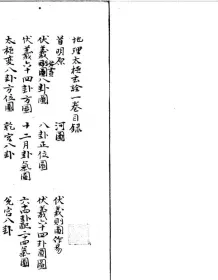 地理太極一卷目錄
首明原 河圖 伏羲則圖作易
伏羲八卦圖 八卦正位圖 伏羲六十四卦圓圖
伏羲六十四卦方圖 十二月卦氣圖 六十四卦配二十四氣圖
太極變八卦方位圖 乾宮八卦 兌宮八卦